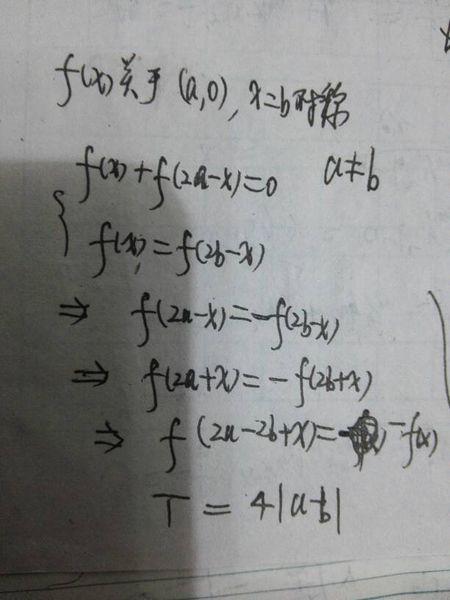 f(x)关于(a,0),x=b对称
f(x)+f(2a-x)=0 a≠b
f(x)=f(2b-x)
⇒ f(2a-x)=-f(2b-x)
⇒ f(2a+x)=-f(2b+x)
⇒ f(2a-2b+x)=-f(x)
T=4|a-b|